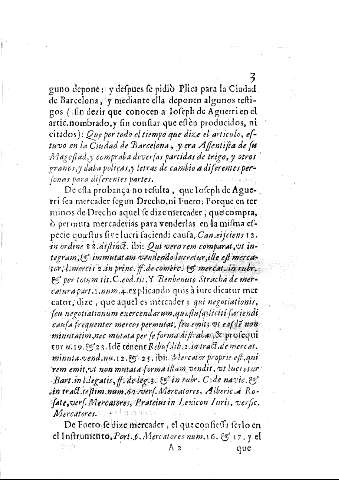 3
guno depone: y despues se pidiò Plica para la Ciudad
de Barcelona, y mediante ella deponen algunos testi-
gos (sin dezir que conocen a Ioseph de Aguerri en el
artic. nombrado, y sin constar que estèn producidos, ni
citados): Que por todo el tiempo que dize el articulo, es-
tuvo en la Ciudad de Barcelona, y era Assentista de su
Magestad, y compraba diversas partidas de trigo, y otros
granos, y daba polizas, y letras de cambio a diferentes per-
sonas para diferentes partes.
De esta probança no resulta, que Ioseph de Ague-
rri sea mercader segun Drecho, ni Fuero; Porque en ter
minos de Drecho aquel se dize mercader, que compra,
ò permuta mercaderias para venderlas en la misma es-
pecie quas suis sive lucri faciendi causa, Can. eijciens 12.
in ordine 88. distinct. ibi: Qui vero rem comparat, ut in-
tegram, & immutatam vendendo lucretur, ille est merca-
tor, l. merces 2. in princ. ff. de commerc. & mercat. in rubr.
& per totum tit. C. eod. tit. Y Benbenuto Stracha de mer-
catura part. 1. num. 4. explicando quis à iure dicatur mer
cator, dize, que aquel es mercader: qui negotiationis,
seu negotiationum exercendarum, quæstusque sui faciendi
causa frequenter merces permutat, seu emit, ut eas dem non
immutatim, nec mutata per se forma distrahat, & prosequi
tur n. 19. & 23. Idem tenent Rebuf. lib. 2. in tract. de mercat.
minuta. vend. nu. 12. & 25. ibi: Mercator propriè est, qui
rem emit, ut non mutata forma istam vendit, ut lucretur
Bart. in l. legatis, ff. de leg. 3. & in rubr. C. de navic. &
in tract. testim. num. 67. vers. Mercatores. Alberic. à Ro-
sate, vers. Mercatores, Prateius in Lexicon Iuris, versic.
Mercatores.
De Fuero se dize mercader, el que confiessa serlo en
el Instrumento, Port. §. Mercatores num. 16. & 17. y el
A 2 que